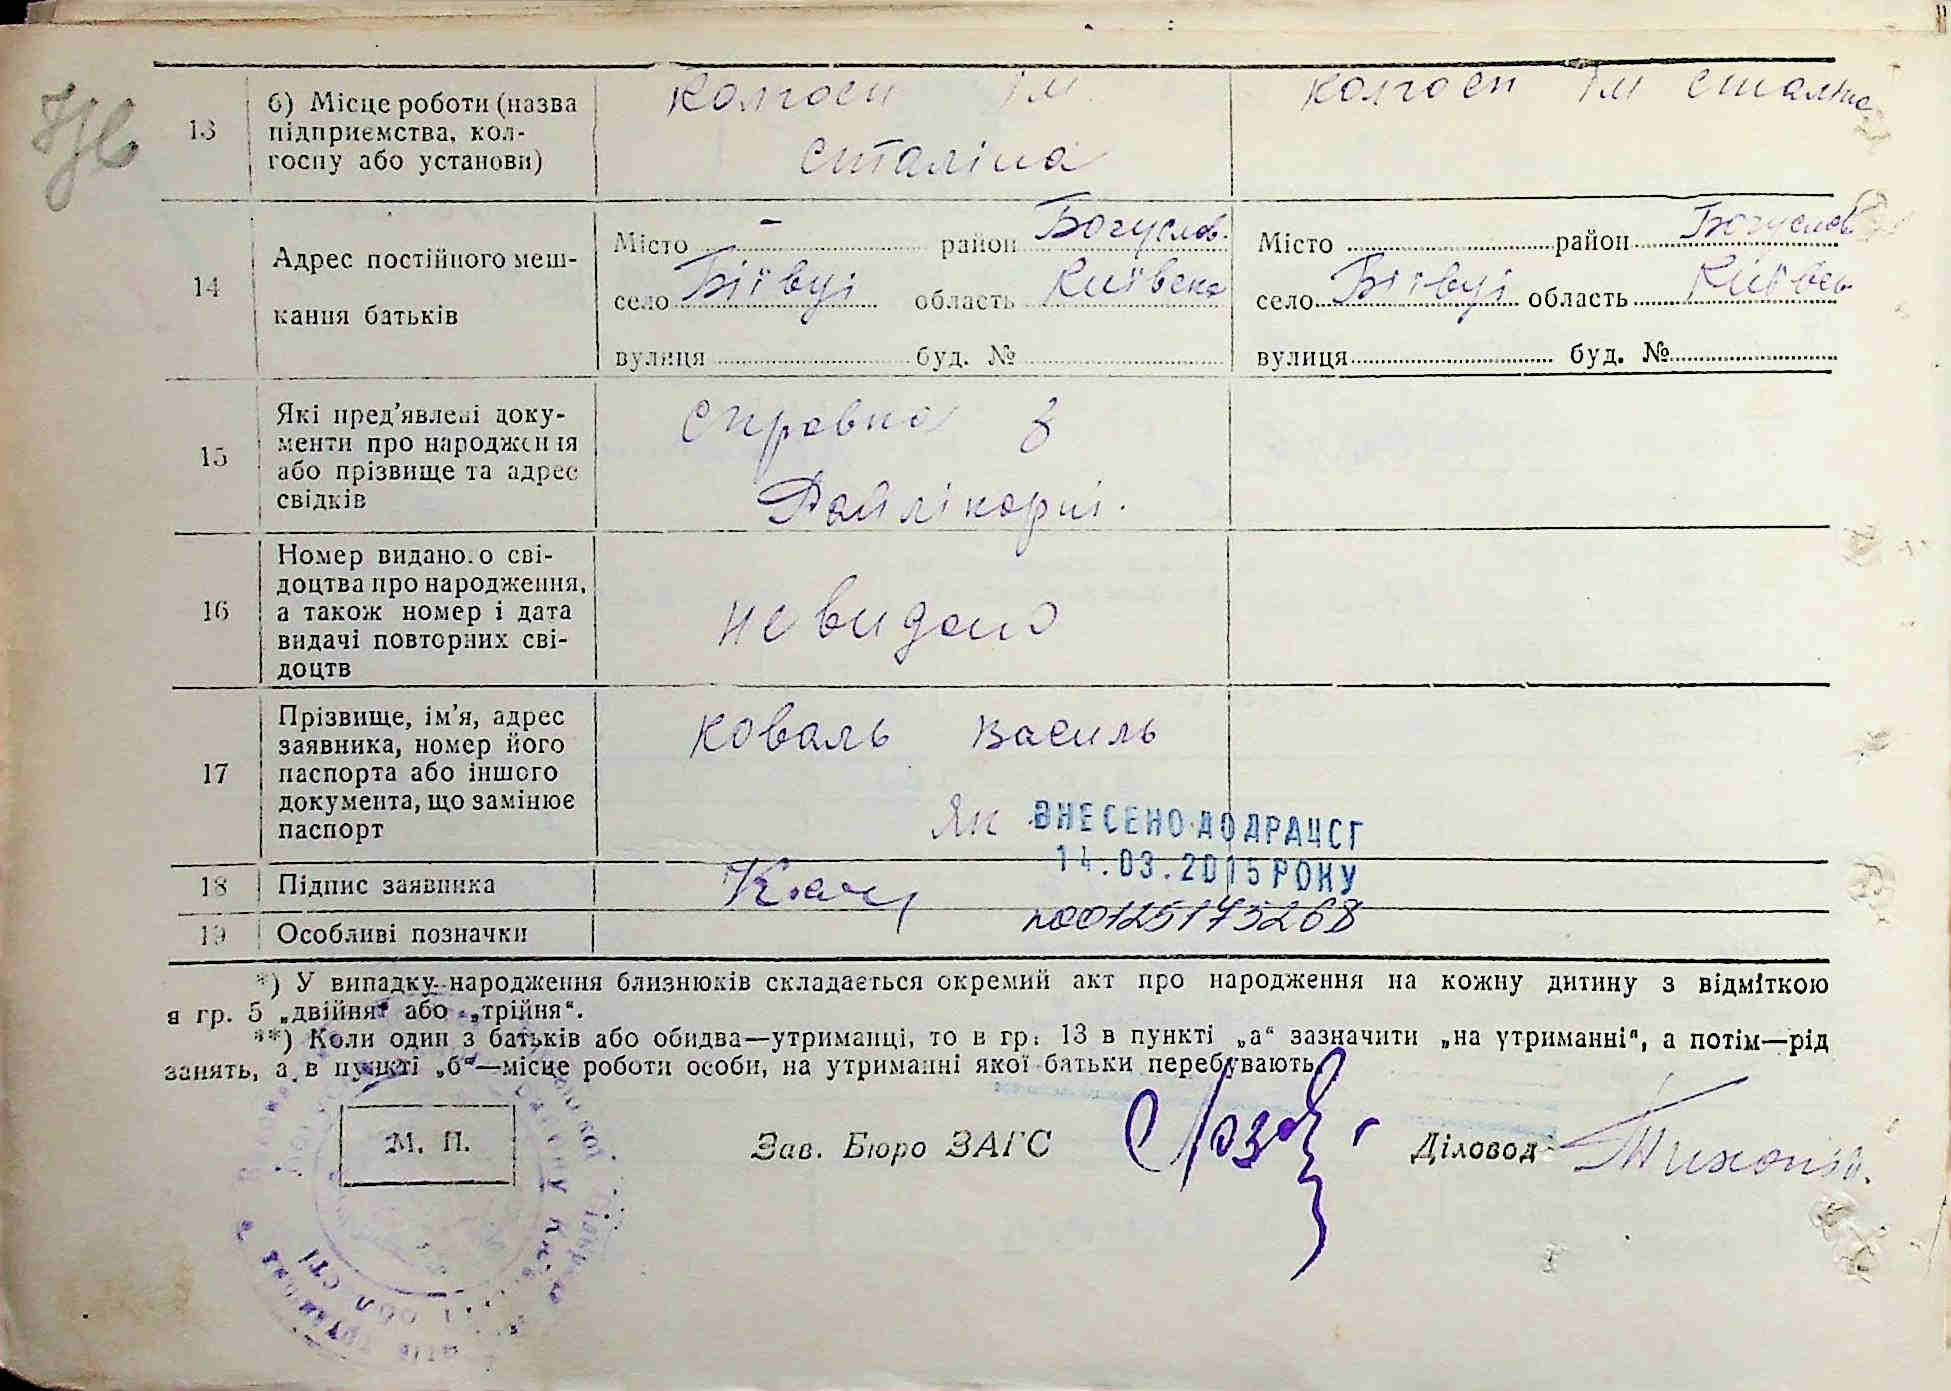 13
б) Місце роботи (назва
підприємства, кол-
госпу або установи)
колгосп ім
сталіна
колгосп ім сталіна
14
Адрес постійного меш-
кання батьків
Місто - район Богуслов.
село Біївці область Київська
вулиця буд. №
Місто район Богуслов
село Біївці область Київсь
вулиця буд. №
15
Які пред'явлені доку-
менти про народження
або прізвище та адрес
свідків
справка з
Райлікарні.
16
Номер видано.о сві-
доцтва про народження,
а також номер і дата
видачі повторних сві-
доцтв
не видано
17
Прізвище, ім'я, адрес
заявника, номер його
паспорта або іншого
документа, що замінює
паспорт
коваль василь
Як
ВНЕСЕНО ДО ДРАЦСГ
14.03.2015 РОКУ
18
Підпис заявника
19
Особливі позначки
№00125175268
*) У випадку народження близнюків складається окремий акт про народження на кожну дитину з відміткою
в гр. 5 „двійня“ або „трійня“.
**) Коли один з батьків або обидва—утриманці, то в гр. 13 в пункті „а“ зазначити „на утриманні“, а потім—рід
занять, а в пункті „б“—місце роботи особи, на утриманні якої батьки перебувають.
М. П.
Зав. Бюро ЗАГС
Діловод